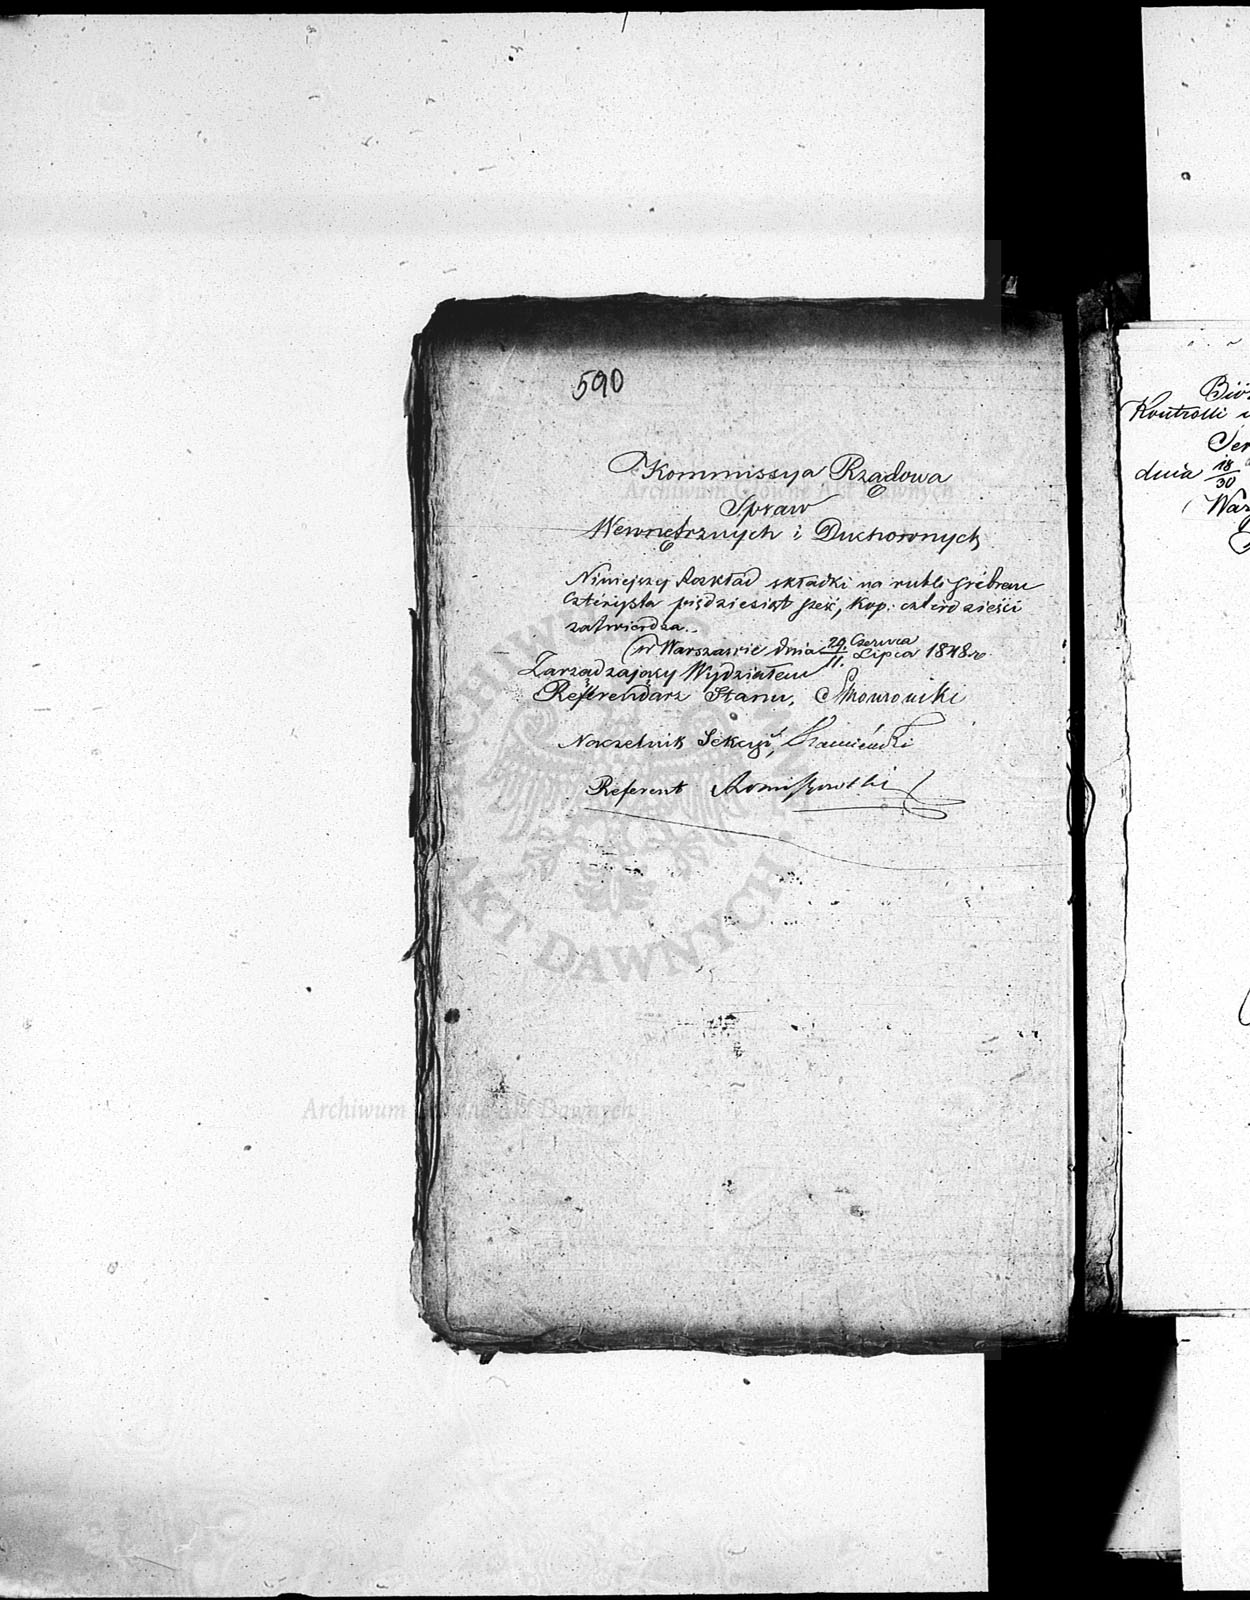 590
Kommissya Rządowa
Spraw
Wewnętrznych i Duchownych
Niniejszy Rozkład składki na rubli srebrem
czterysta pięćdziesiąt sześć, kop: czterdzieści
zatwierdza.
w Warszawie dnia 29. Czerwca / 11. Lipca 1848 r
Zarządzający Wydziałem
Referendarz Stanu,
Naczelnik Sekcyi,
Referent
Kontrolli
dnia 18/30
Archiwum Główne Akt Dawnych
Archiwum Główne Akt Dawnych
ARCHIWUM
AKT DAWNYCH